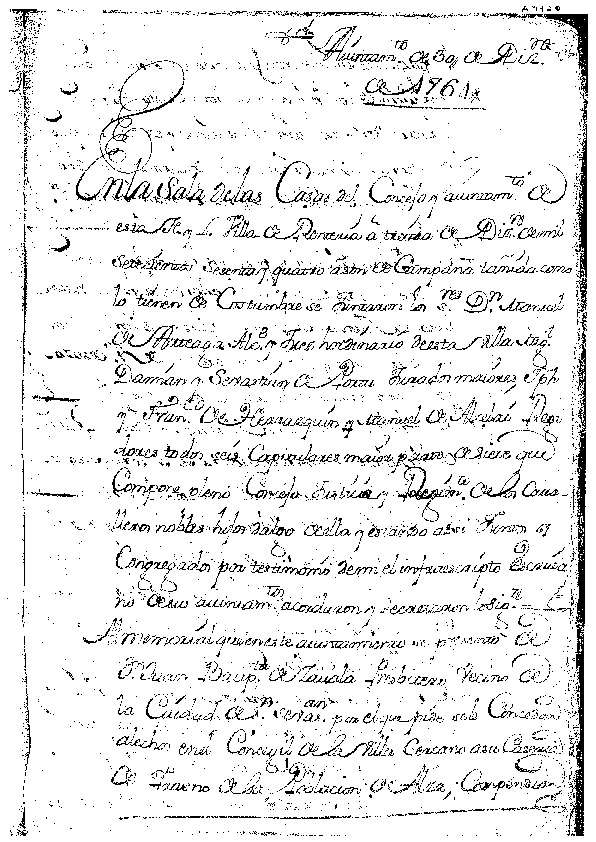 Aiuntam.to de 30 de Diz.re
de 1764
En la Sala de las Casas del Concejo y aiuntam.to de
esta N. y L. Villa de Renteria a treinta de Diz.re de mil
setecientos sesenta y quatro a son de Campana tañida como
lo tienen de Costumbre se Juntaron los s.res D.n Manuel
de Arteaga Alc.e y Juez hordinario de esta Villa
Damian y Sevastian de Jurados maiores, Jph
y Fran.co de Herrasquin y Manuel de Regi
dores todos seis Capitulares maior parte de siete que
Componen pleno Concejo Justicia y Regim.to de los Cava-
lleros nobles hijosdalgo de ella y estando assi Juntos y
Congregados por testimonio de mi el infraescripto Escriva
no de su aiuntam.to acordaron y decretaron lo sig.te
A memorial que en este aiuntamiento se presentó de
D. Juan Baup.ta de Zavala Presbitero, Vecino de
la Ciudad de S.n Sevas.an por el que pide se le Conceda
alecho en el Concegil de la Villa Cercano a su Caseria
de de la Poblacion de Alza, Compensan